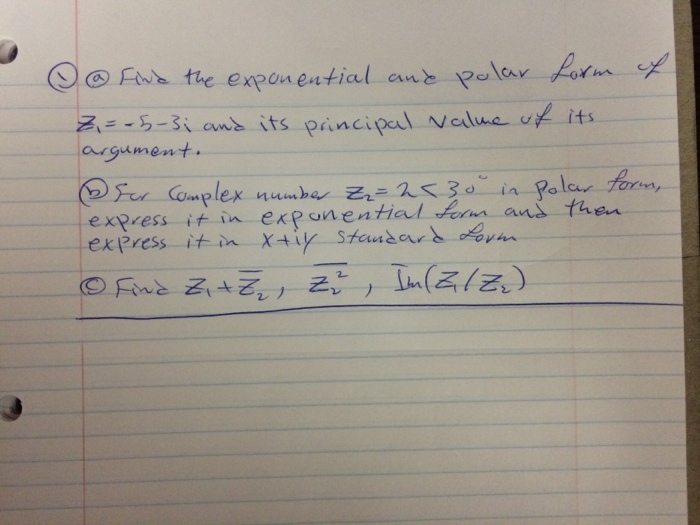 ① ⓐ Find the exponential and polar form of
Z₁ = -5-3i and its principal value of its
argument.
ⓑ For Complex number Z₂ = 2<30° in polar form,
express it in exponential form and then
express it in x+iy standard form
ⓒ Find Z₁ + Z̅₂, \overline{Z₂²}, Im(Z₁/Z₂)